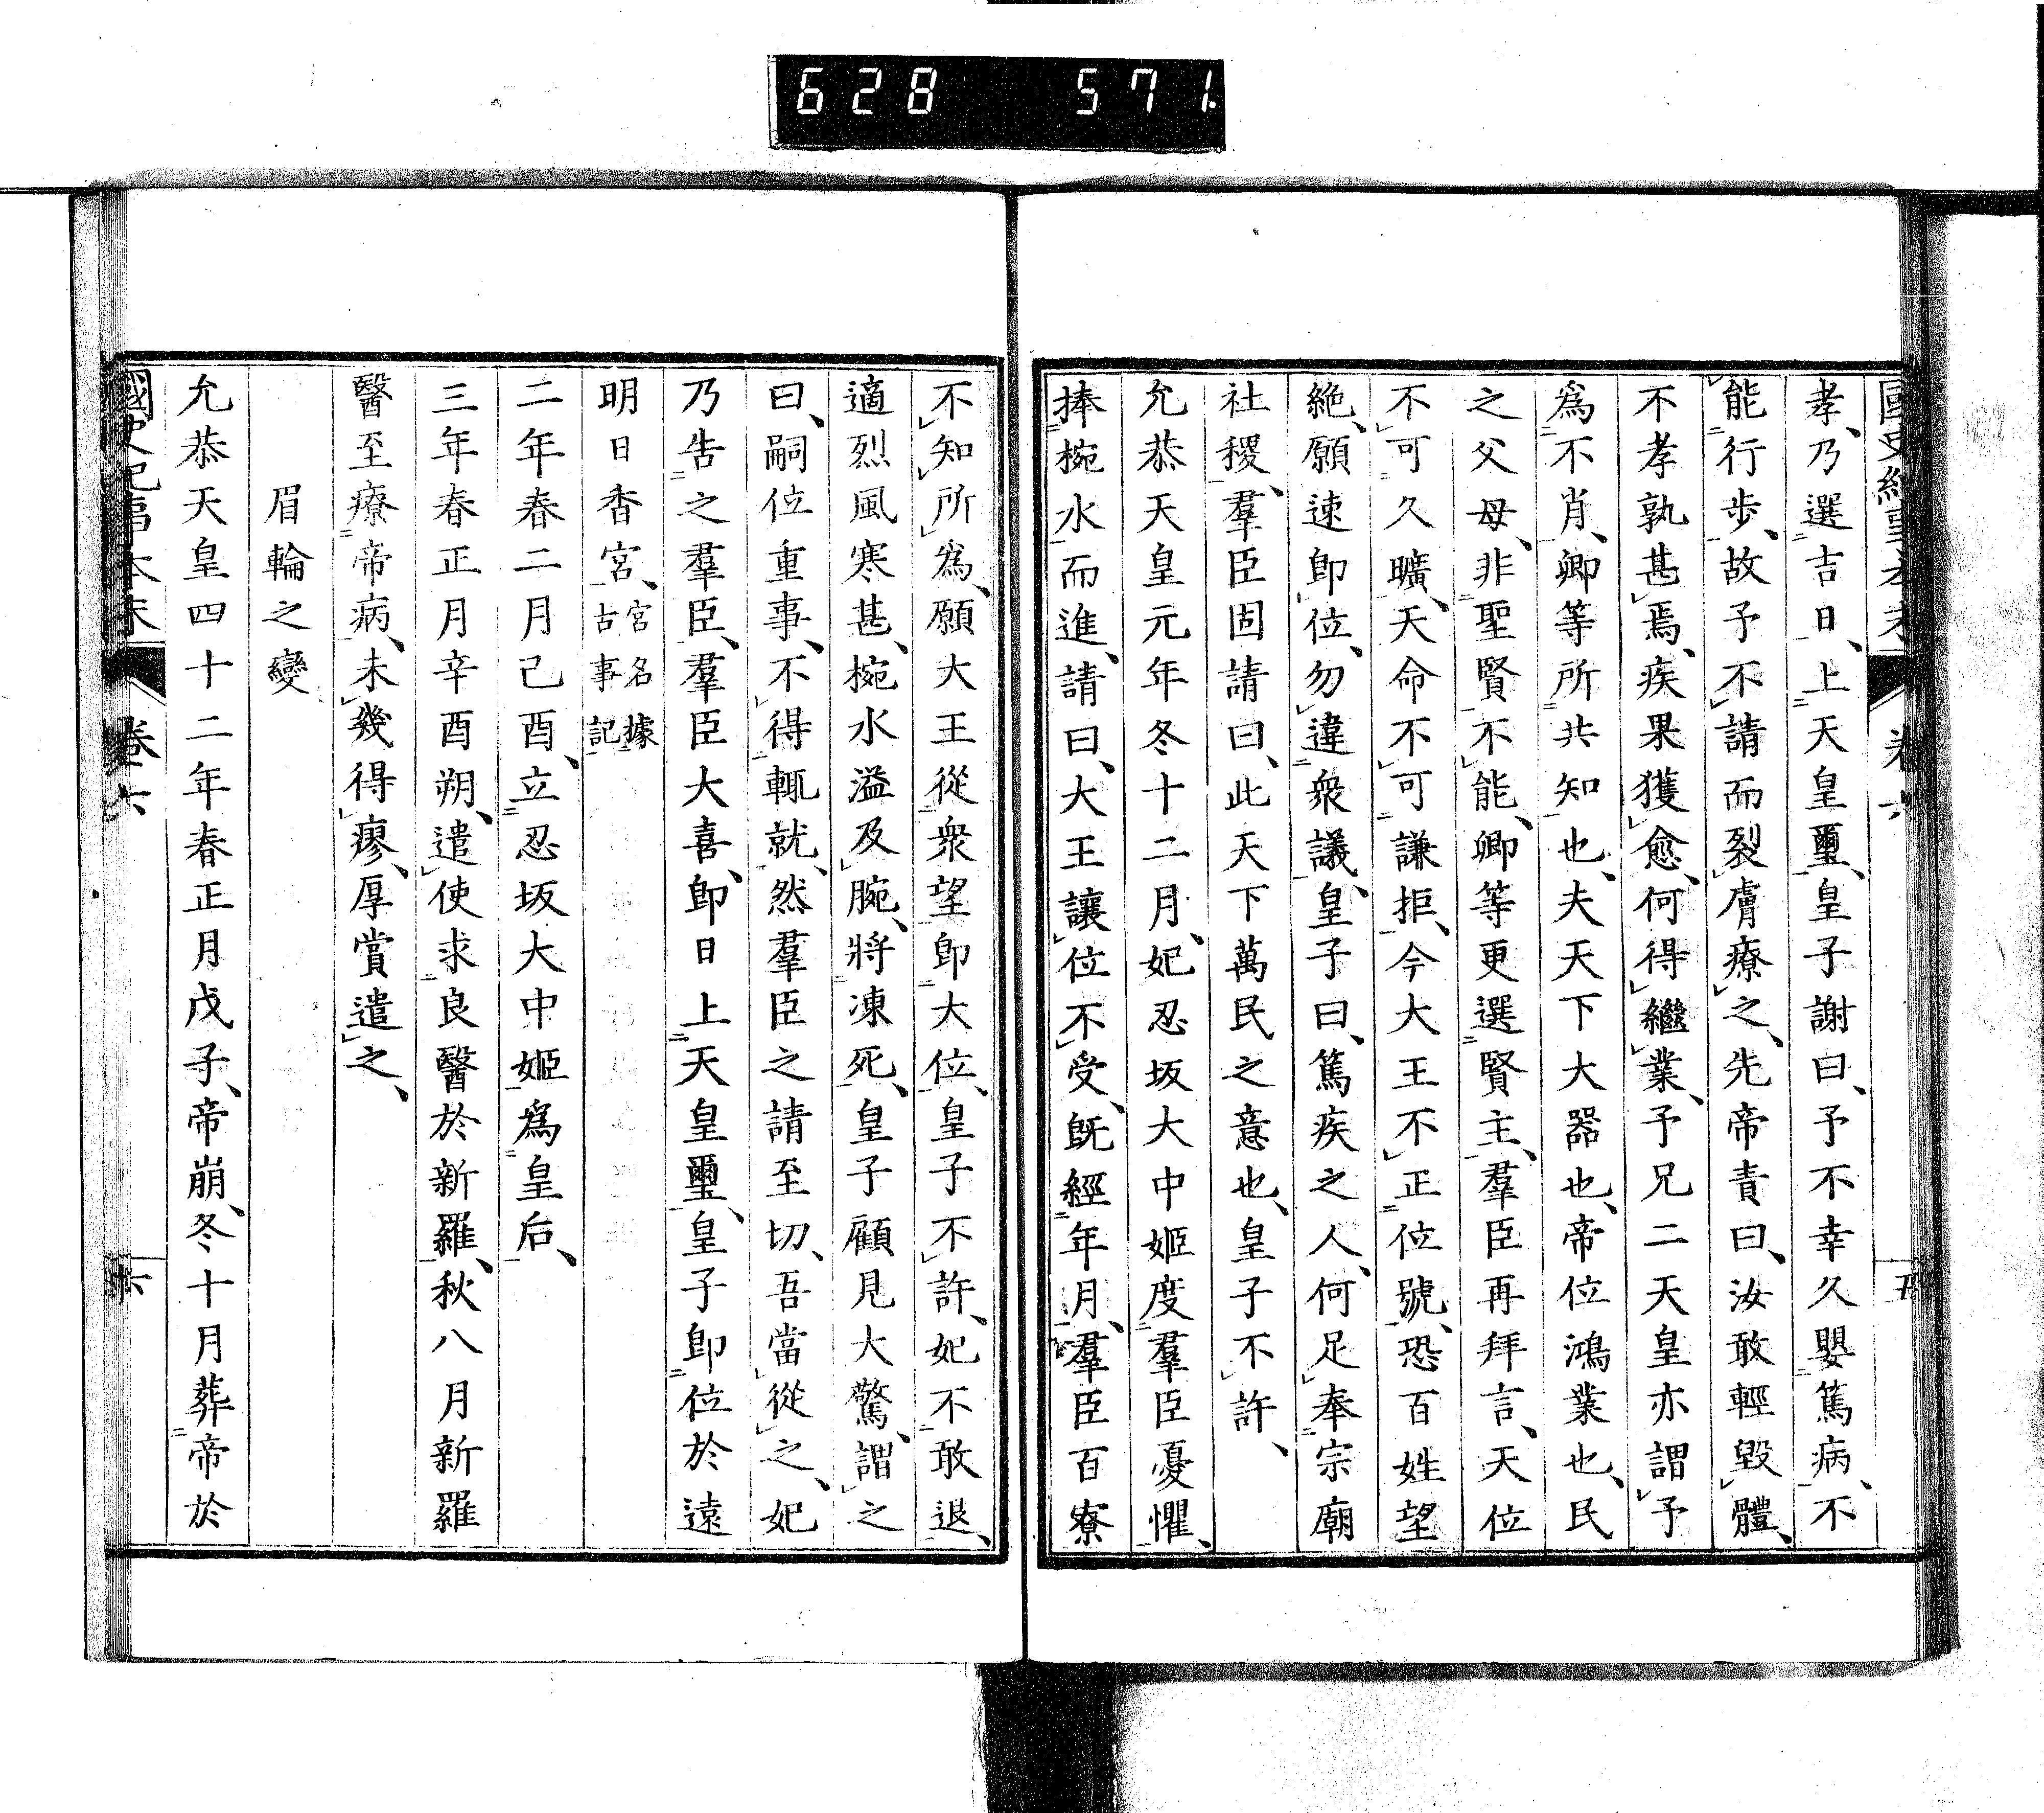 628 571
孝、乃選吉日、上天皇璽、皇子謝曰、予不幸久嬰篤病、不
能行步、故予不請而裂膚療之、先帝責曰、汝敢輕毀體、
不孝孰甚焉、疾果獲愈、何得繼業、予兄二天皇亦謂予
爲不肖、卿等所共知也、夫天下大器也、帝位鴻業也、民
之父母、非聖賢不能、卿等更選賢主、羣臣再拜言、天位
不可久曠、天命不可謙拒、今大王不正位號、恐百姓望
絶、願速卽位、勿違衆議、皇子曰、篤疾之人、何足奉宗廟
社稷、羣臣固請曰、此天下萬民之意也、皇子不許、
允恭天皇元年冬十二月、妃忍坂大中姬度羣臣憂懼、
捧椀水而進、請曰、大王讓位不受、旣經年月、羣臣百寮
不知所爲、願大王從衆望卽大位、皇子不許、妃不敢退、
適烈風寒甚、椀水溢及腕、將凍死、皇子顧見大驚、謂之
曰、嗣位重事、不得輒就、然羣臣之請至切、吾當從之、妃
乃告之羣臣、羣臣大喜、卽日上天皇璽、皇子卽位於遠
明日香宮、宮名據古事記
二年春二月己酉、立忍坂大中姬爲皇后、
三年春正月辛酉朔、遣使求良醫於新羅、秋八月新羅
醫至療帝病、未幾得瘳、厚賞遣之、
眉輪之變
允恭天皇四十二年春正月戊子、帝崩、冬十月葬帝於
國史紀事本末 卷六 六